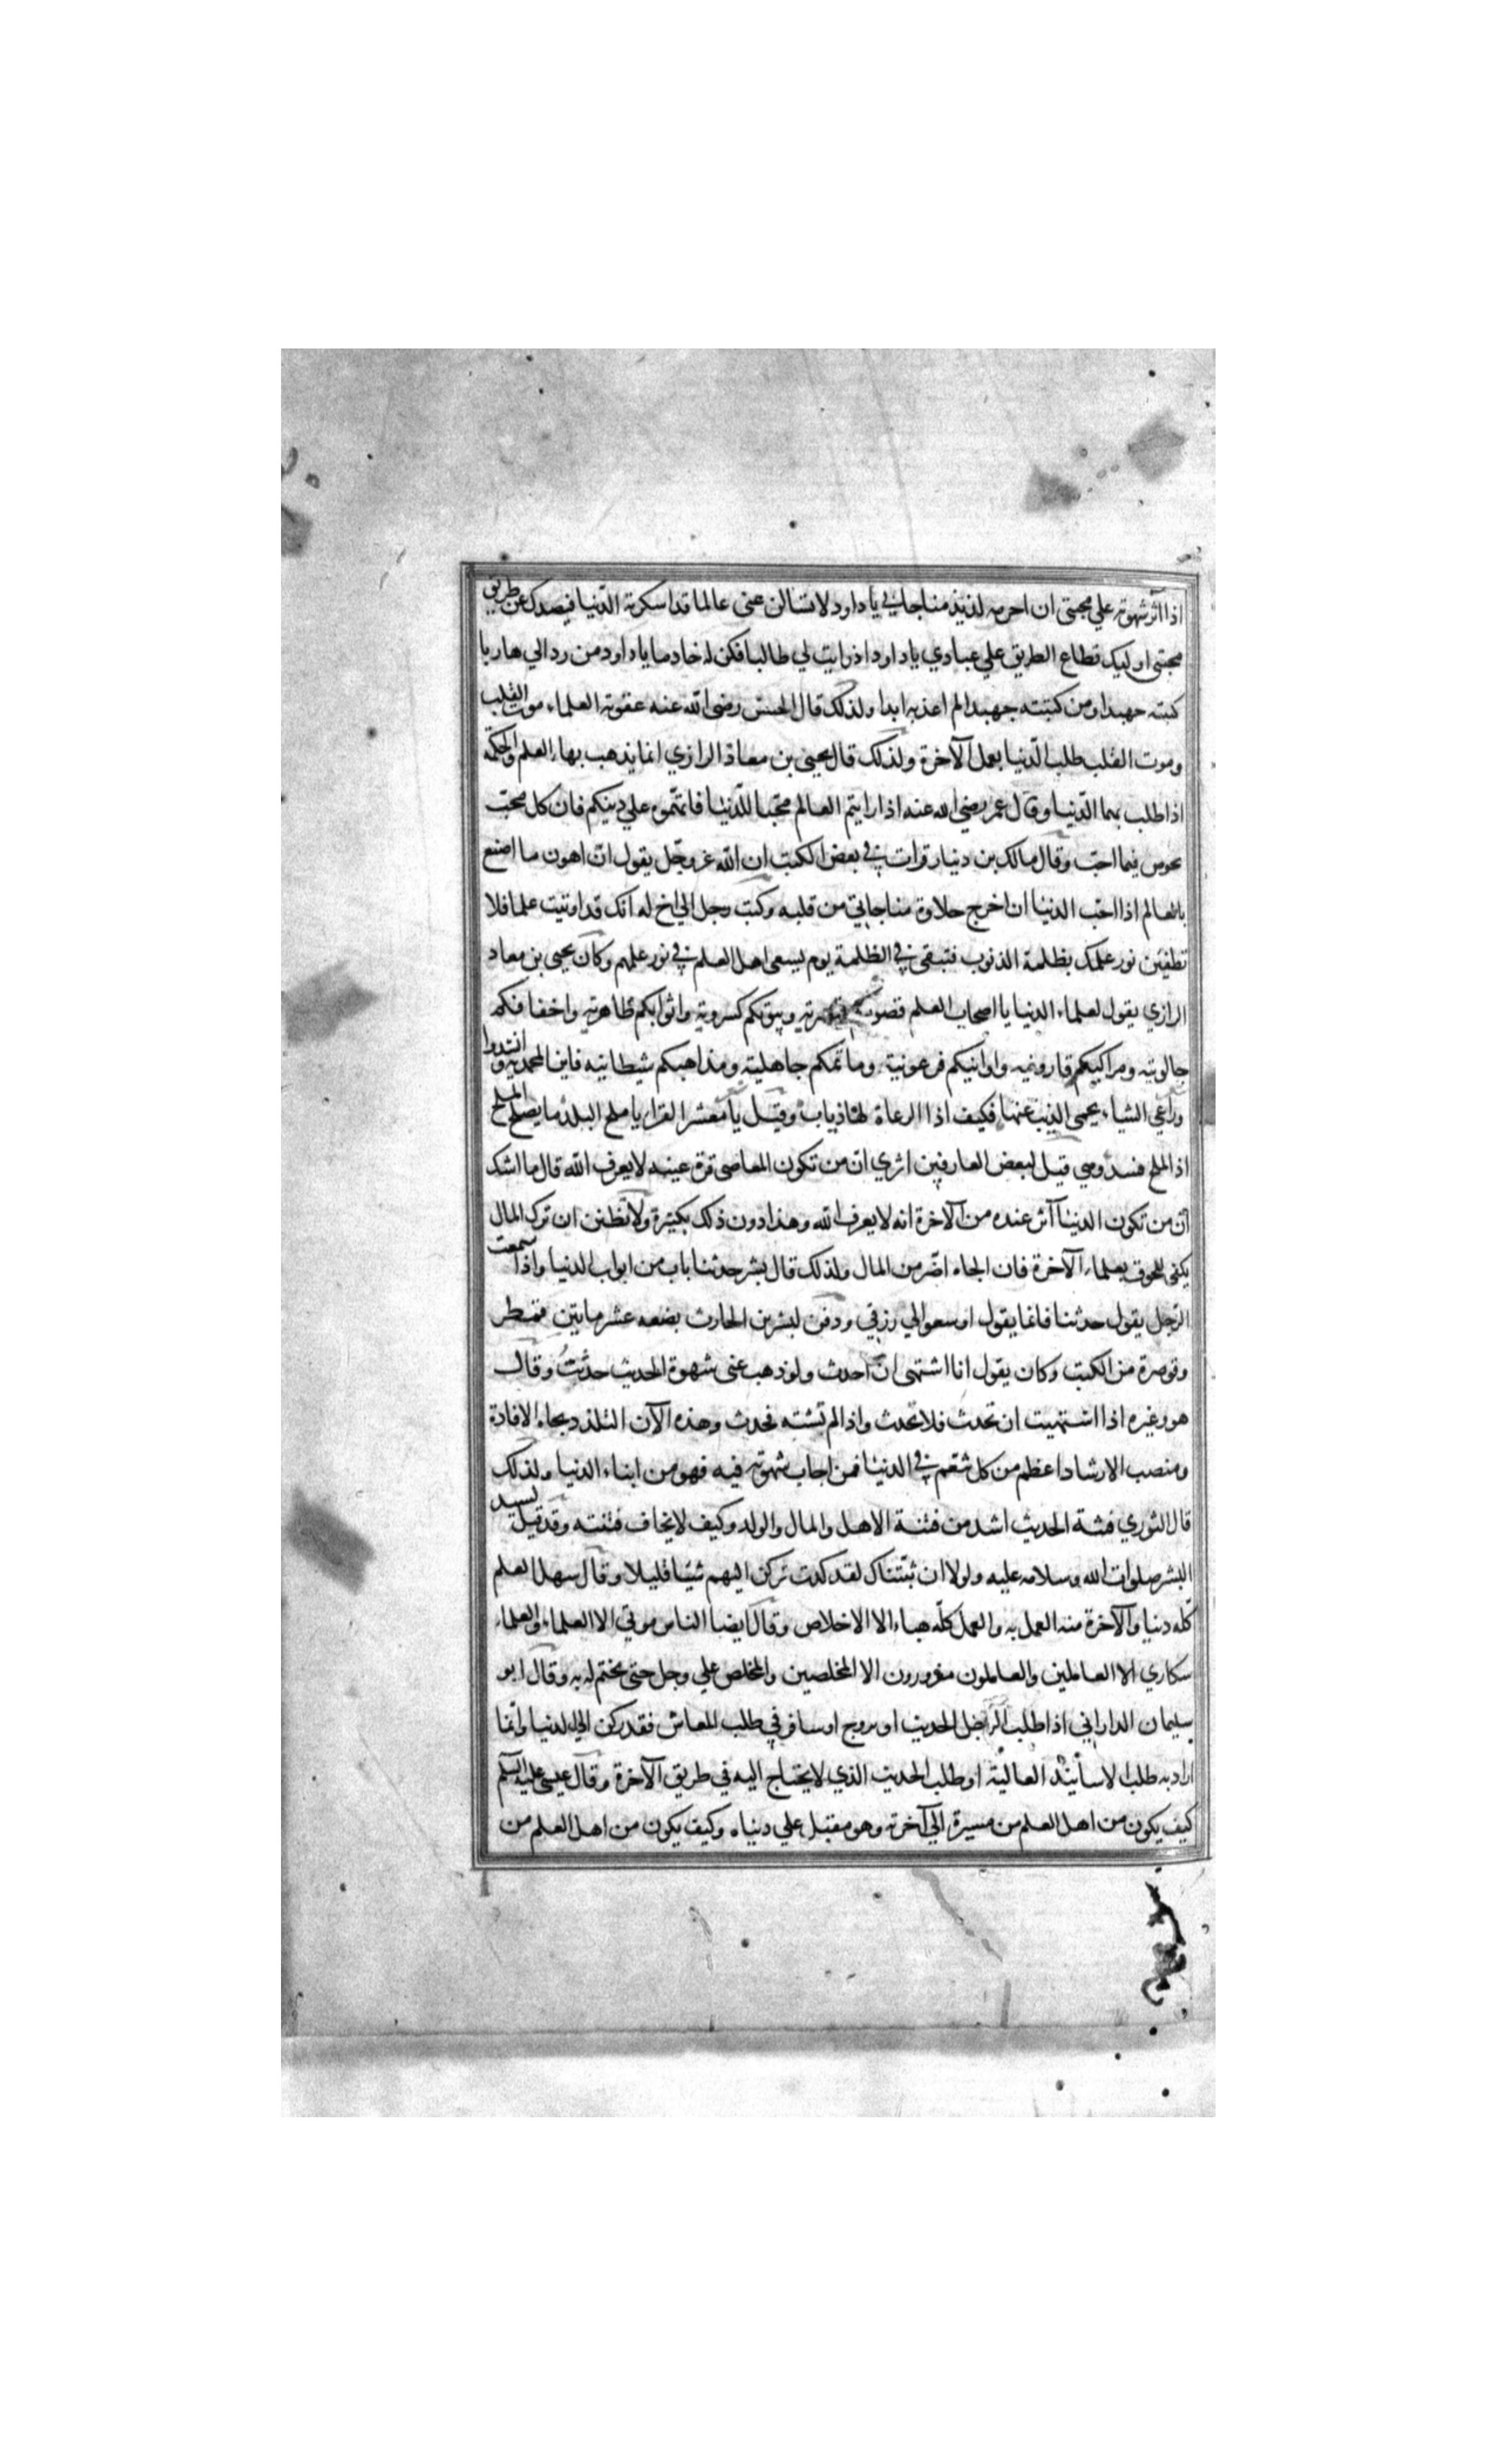 اذا آثر شهوته علي محبتي ان احرمه لذيذ مناجاتي يا داود لا تسالن عني عالما قد اسكرته الدّنيا فيصدك عن طريق
محبتي اوليك قطاع الطريق علي عبادي ياداود اذ رايت لي طالبا فكن له خادما ياداود من رد الي هاربا
كبته جهبدا ومن كتبته جهبدا لم اعذبه ابدا ولذلك قال الحسن رضى الله عنه عقوبة العلماء موت القلب
وموت القلب طلب الدّنيا بعمل الآخرة ولذلك قال يحيى بن معاذ الرازي انما يذهب بهاء العلم والحكمة
اذا طلب بهما الدّنيا وقال عمر رضي الله عنه اذا رايتم العالم محبّا للدّنيا فاتّهموه علي دينكم فان كل محبّ
يخوض فيما احبّ وقال مالك بن دنيار قرات في بعض الكتب ان الله عز وجّل يقول انّ اهون ما اصنع
بالعالم اذا احبّ الدنيا ان اخرج حلاوة مناجاتي من قلبه وكتب رجل الي اخ له انك قد اوتيت علما فلا
تطفئن نور علمك بظلمة الذنوب فتبقى في الظلمة يوم يسعى اهل العلم في نور علمهم وكان يحيى بن معاد
الرازي يقول لعلماء الدنيا يا اصحاب العلم قصوركم قيصرية وبيوتكم كسروية واثوابكم ظاهرية واخفافكم
جالوتيه ومراكبكم قارونيه واوانيكم فرعونية وماتمكم جاهلية ومذاهبكم شيطانيه فاين المحمديه وانشدوا
وراعي الشياء يحمى الذيب عنها فكيف اذا الرعاة لها ذياب وقيل يا معشر القرا يا ملح البلد ما يصلح الملح
اذ الملح فسد وهي قيل لبعض العارفين اتري انّ من تكون المعاصي قرة عينه لا يعرف الله قال ما اشك
انّ من تكون الدنيا آثر عنده من الآخرة انه لا يعرف الله وهذا دون ذلك بكثيرة ولا تظنن ان ترك المال
يكفى للحوق بعلماء الآخرة فان الجاه اضّر من المال ولذلك قال بشر حدثنا باب من ابواب الدنيا واذا سمعت
الرّجل يقول حدثنا فانما يقول اوسعوالي رزقي ودفن لبشر بن الحارث بضعه عشر ما بين قمطر
وقوصرة من الكتب وكان يقول انا اشتهى انّ احدث ولو ذهب عنى شهوة الحديث حدّثتُ وقال
هو وغيره اذا اشتهيت ان تحدث فلا تحدث واذا لم تشته فحدث وهذه الآن التلذد بجاه الافادة
ومنصب الارشاد اعظم من كل تنعّم في الدنيا فمن اجاب شهوته فيه فهو من ابناء الدنيا ولذلك
قال الثوري فتنة الحديث اشد من فتنة الاهل والمال والولد وكيف لا يخاف فتنته وقد قيل لسيد
البشر صلوات الله وسلامه عليه ولولا ان ثبّتناك لقد كدت تركن اليهم شيئا قليلا وقال سهل العلم
كلّه دنيا والآخرة منه العمل به والعمل كلّه هباء الا الاخلاص وقال ايضا الناس موتي الا العلماء والعلماء
سكاري الا العاملين والعاملون مغرورون الا المخلصين والمخلص علي وجل حتى يختم له به وقال ابو
سليمان الداراني اذا طلب الرّجل الحديث او يروج او سافر في طلب المعاش فقد ركن الي الدنيا وانّما
اراد به طلب الاسانيد العالية او طلب الحديث الذي لا يحتاج اليه في طريق الآخرة وقال عيسى عليه السلم
كيف يكون من اهل العلم من مسيرة الي آخرته وهو مقبل علي دنياه وكيف يكون من اهل العلم من